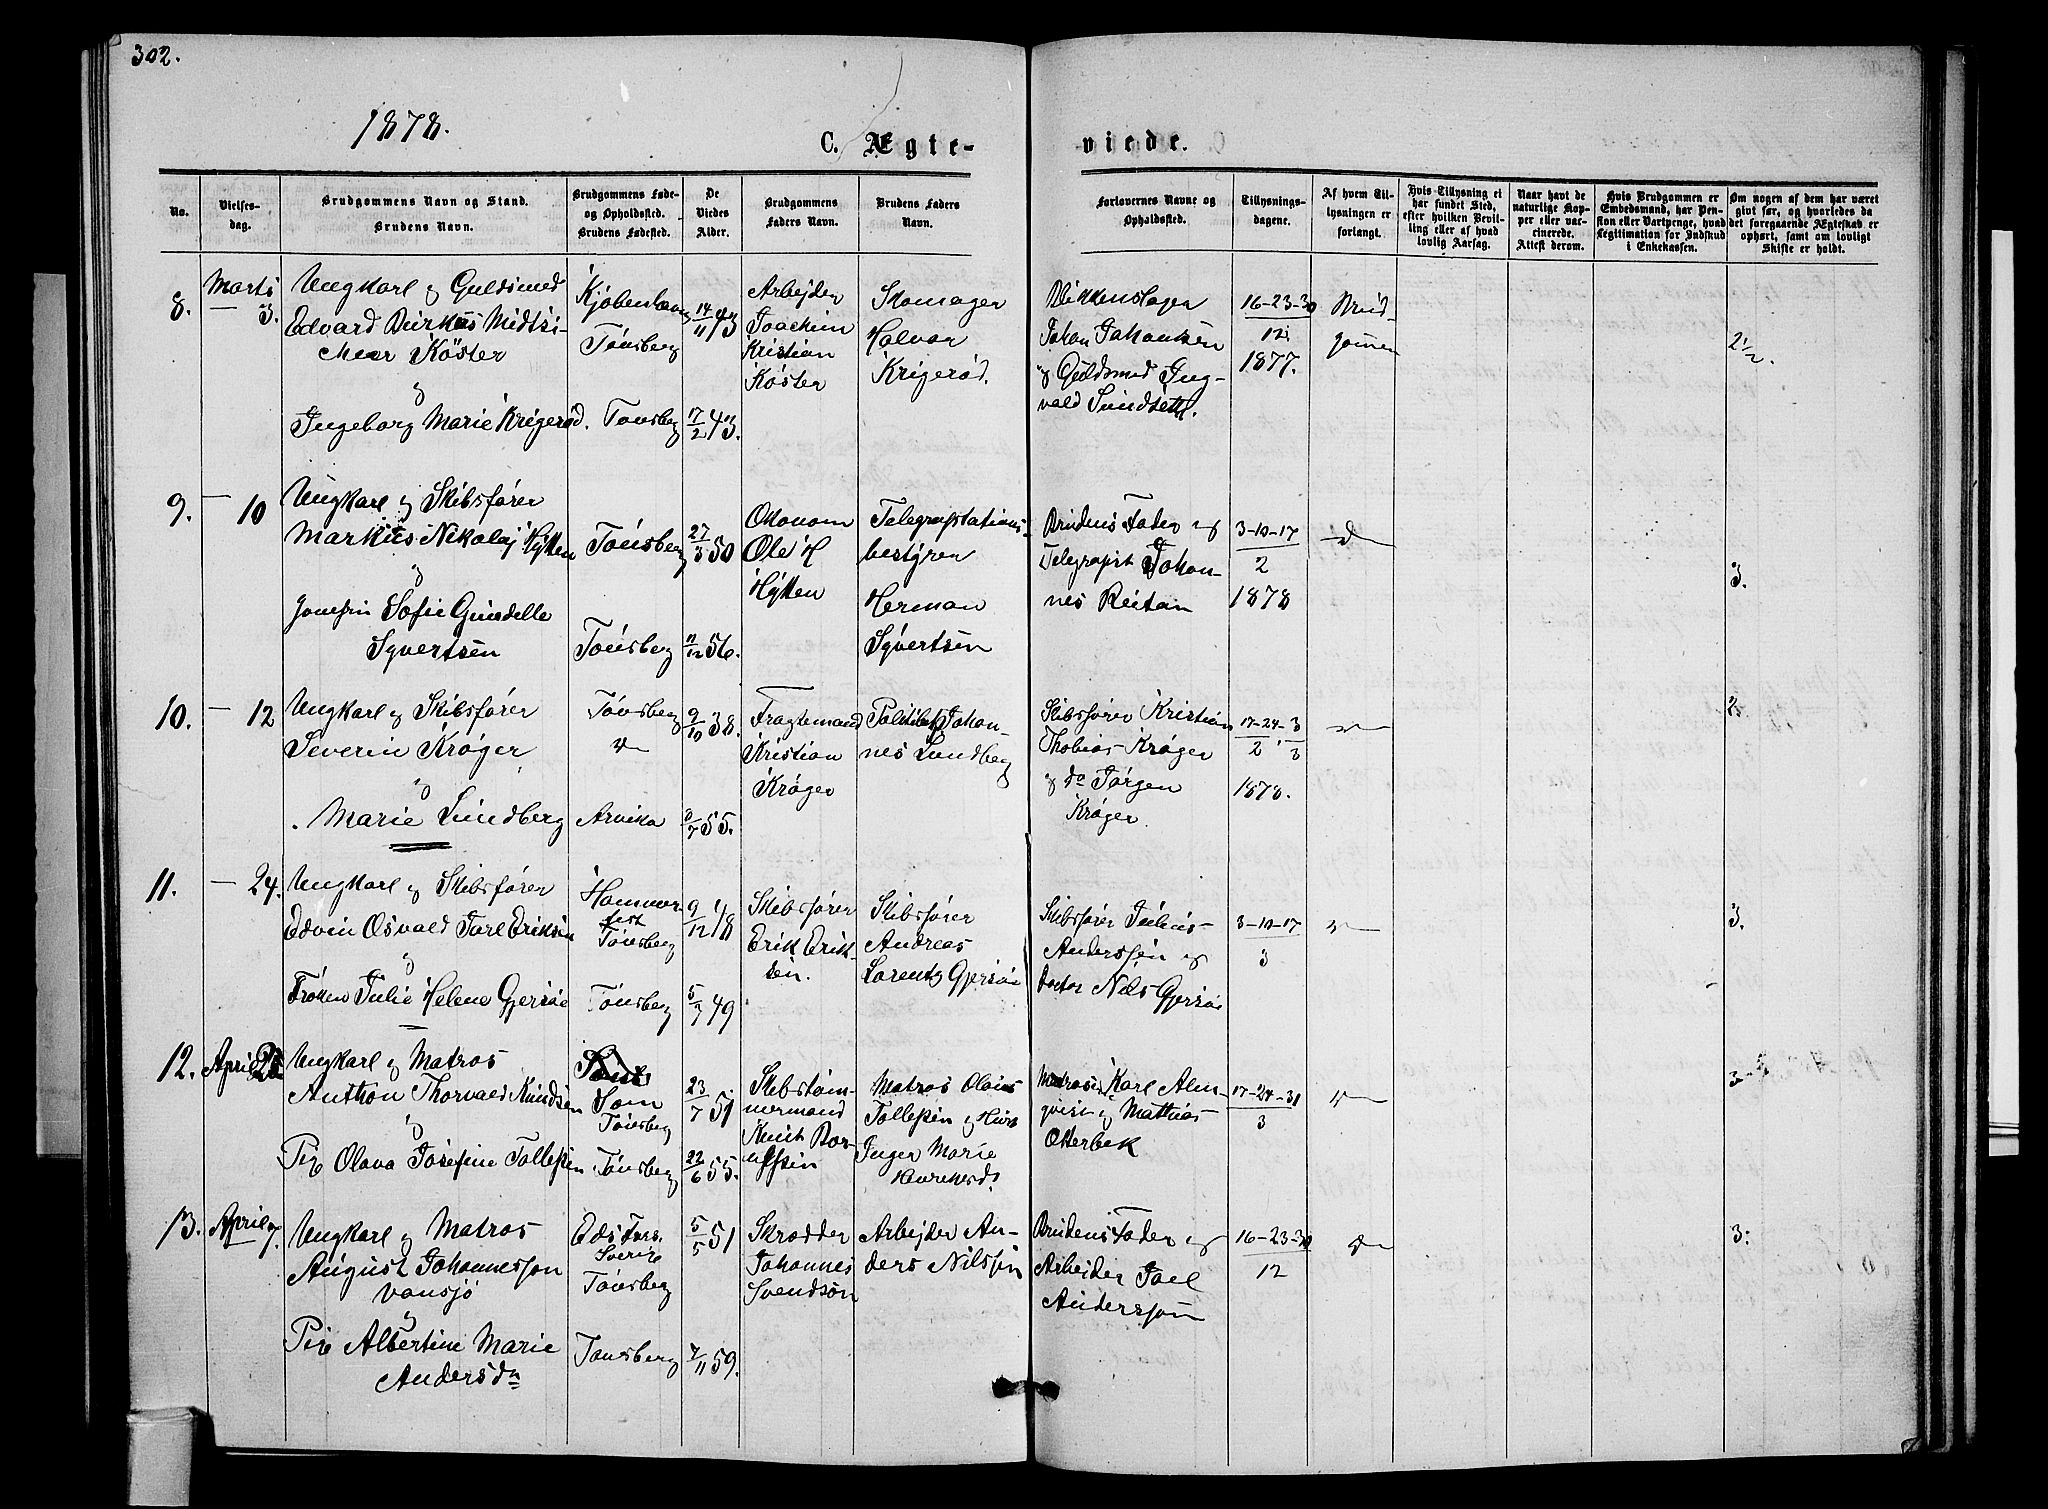 302.
1878.
C. Ægte-
viede.
No.
Vielses-
dag.
Brudgommens Navn og Stand.
Brudens Navn.
Brudgommens Føde-
og Opholdsted.
Brudens Fødested.
De
Viedes
Alder.
Brudgommens
Faders Navn.
Brudens Faders
Navn.
Forlovernes Navne og
Opholdsted.
Tillysnings-
dagene.
Af hvem Til-
lysningen er
forlangt.
Hvis Tillysning ei
har fundet Sted,
efter hvilken Bevil-
ling eller af hvad
lovlig Aarsag.
Naar havt de
naturlige Kop-
per eller vac-
cinerede.
Attest derom.
Hvis Brudgommen er
Embedsmand, har Pen-
sion eller Vartpenge, hvad
Legitimation for Indskud
i Enkekassen.
Om nogen af dem har været
givt før, og hvorledes da
det foregaaende Ægteskab er
ophørt, samt om lovligt
Skifte er holdt.
8.
Marts
3.
Ungkarl og Guldsmed
Edvard
Köster
og
Ingeborg Marie Krigerød.
Kjøbenhavn
Tønsberg
Tønsberg
14/11 43
17/2 43.
Arbejder
Joachim
Kristian
Köster
Skomager
Halvor
Krigerød.
Blikkenslager
Johan Johansen
og Guldsmed Ing-
vald
16-23-30
12
1877.
Brud-
gomen
2½.
9.
10
Ungkarl og Skibsfører
Markus Nikolaj Hytten
og
Jomfru Sofie Gunelle
Syvertsen
Tønsberg
Tønsberg
27/3 50
11/12 56.
Økonom
Ole H
Hytten
Telegrafstations-
bestyrer
Herman
Syvertsen
Brudens Fader og
Telegrafist Johan-
nes Reitan
3-10-17
2
1878
3.
10.
12
Ungkarl og Skibsfører
Severin Krøger
og
Marie Lundberg
Tønsberg
Arvika
9/10 38.
8/7 55.
Fragtemand
Kristian
Krøger
Johan-
nes Lundberg
Skibsfører Kristian
Thobias Krøger
og do Jørgen
Krøger
17-24 . 3
2 3
1878.
2.
11.
24.
Ungkarl og Skibsfører
Edvin Osvald Jarl Eriksen
og
Frøken Julie Helene Gjersøe
Hammer-
fest
Tønsberg
Tønsberg
9/12 48
5/7 49
Skibsfører
Erik Erik-
sen.
Skibsfører
Andreas
Lorentz Gjersøe
Skibsfører Julius
Anderssen og
Doctor Nils Gjersøe
3-10-17
3
3.
12.
April
Ungkarl og Matros
Anthon Thorvald Knudsen
og
Pige Olava Josefine Tollefsen
Sem
Tønsberg
Tønsberg
23/7 51
22/6 55.
Skibstøm-
mermand
Knut
Matros Olaus
Tollefsen og
Inger Marie
Matroser Karl Alm-
qvist og Mathias
Otterbek
17-24-31
3
3
13.
April 7.
Ungkarl og Matros
August Johannesson
Vansjö
og
Pige Albertine Marie
Andersdn
Sverige
Tønsberg
Tønsberg
5/5 51
7/11 59.
Skrædder
Johannes
Svendson
Arbejder An-
ders Nilsson
Brudens Fader og
Arbeider Joel
Andersson
16-23-30
12
3.